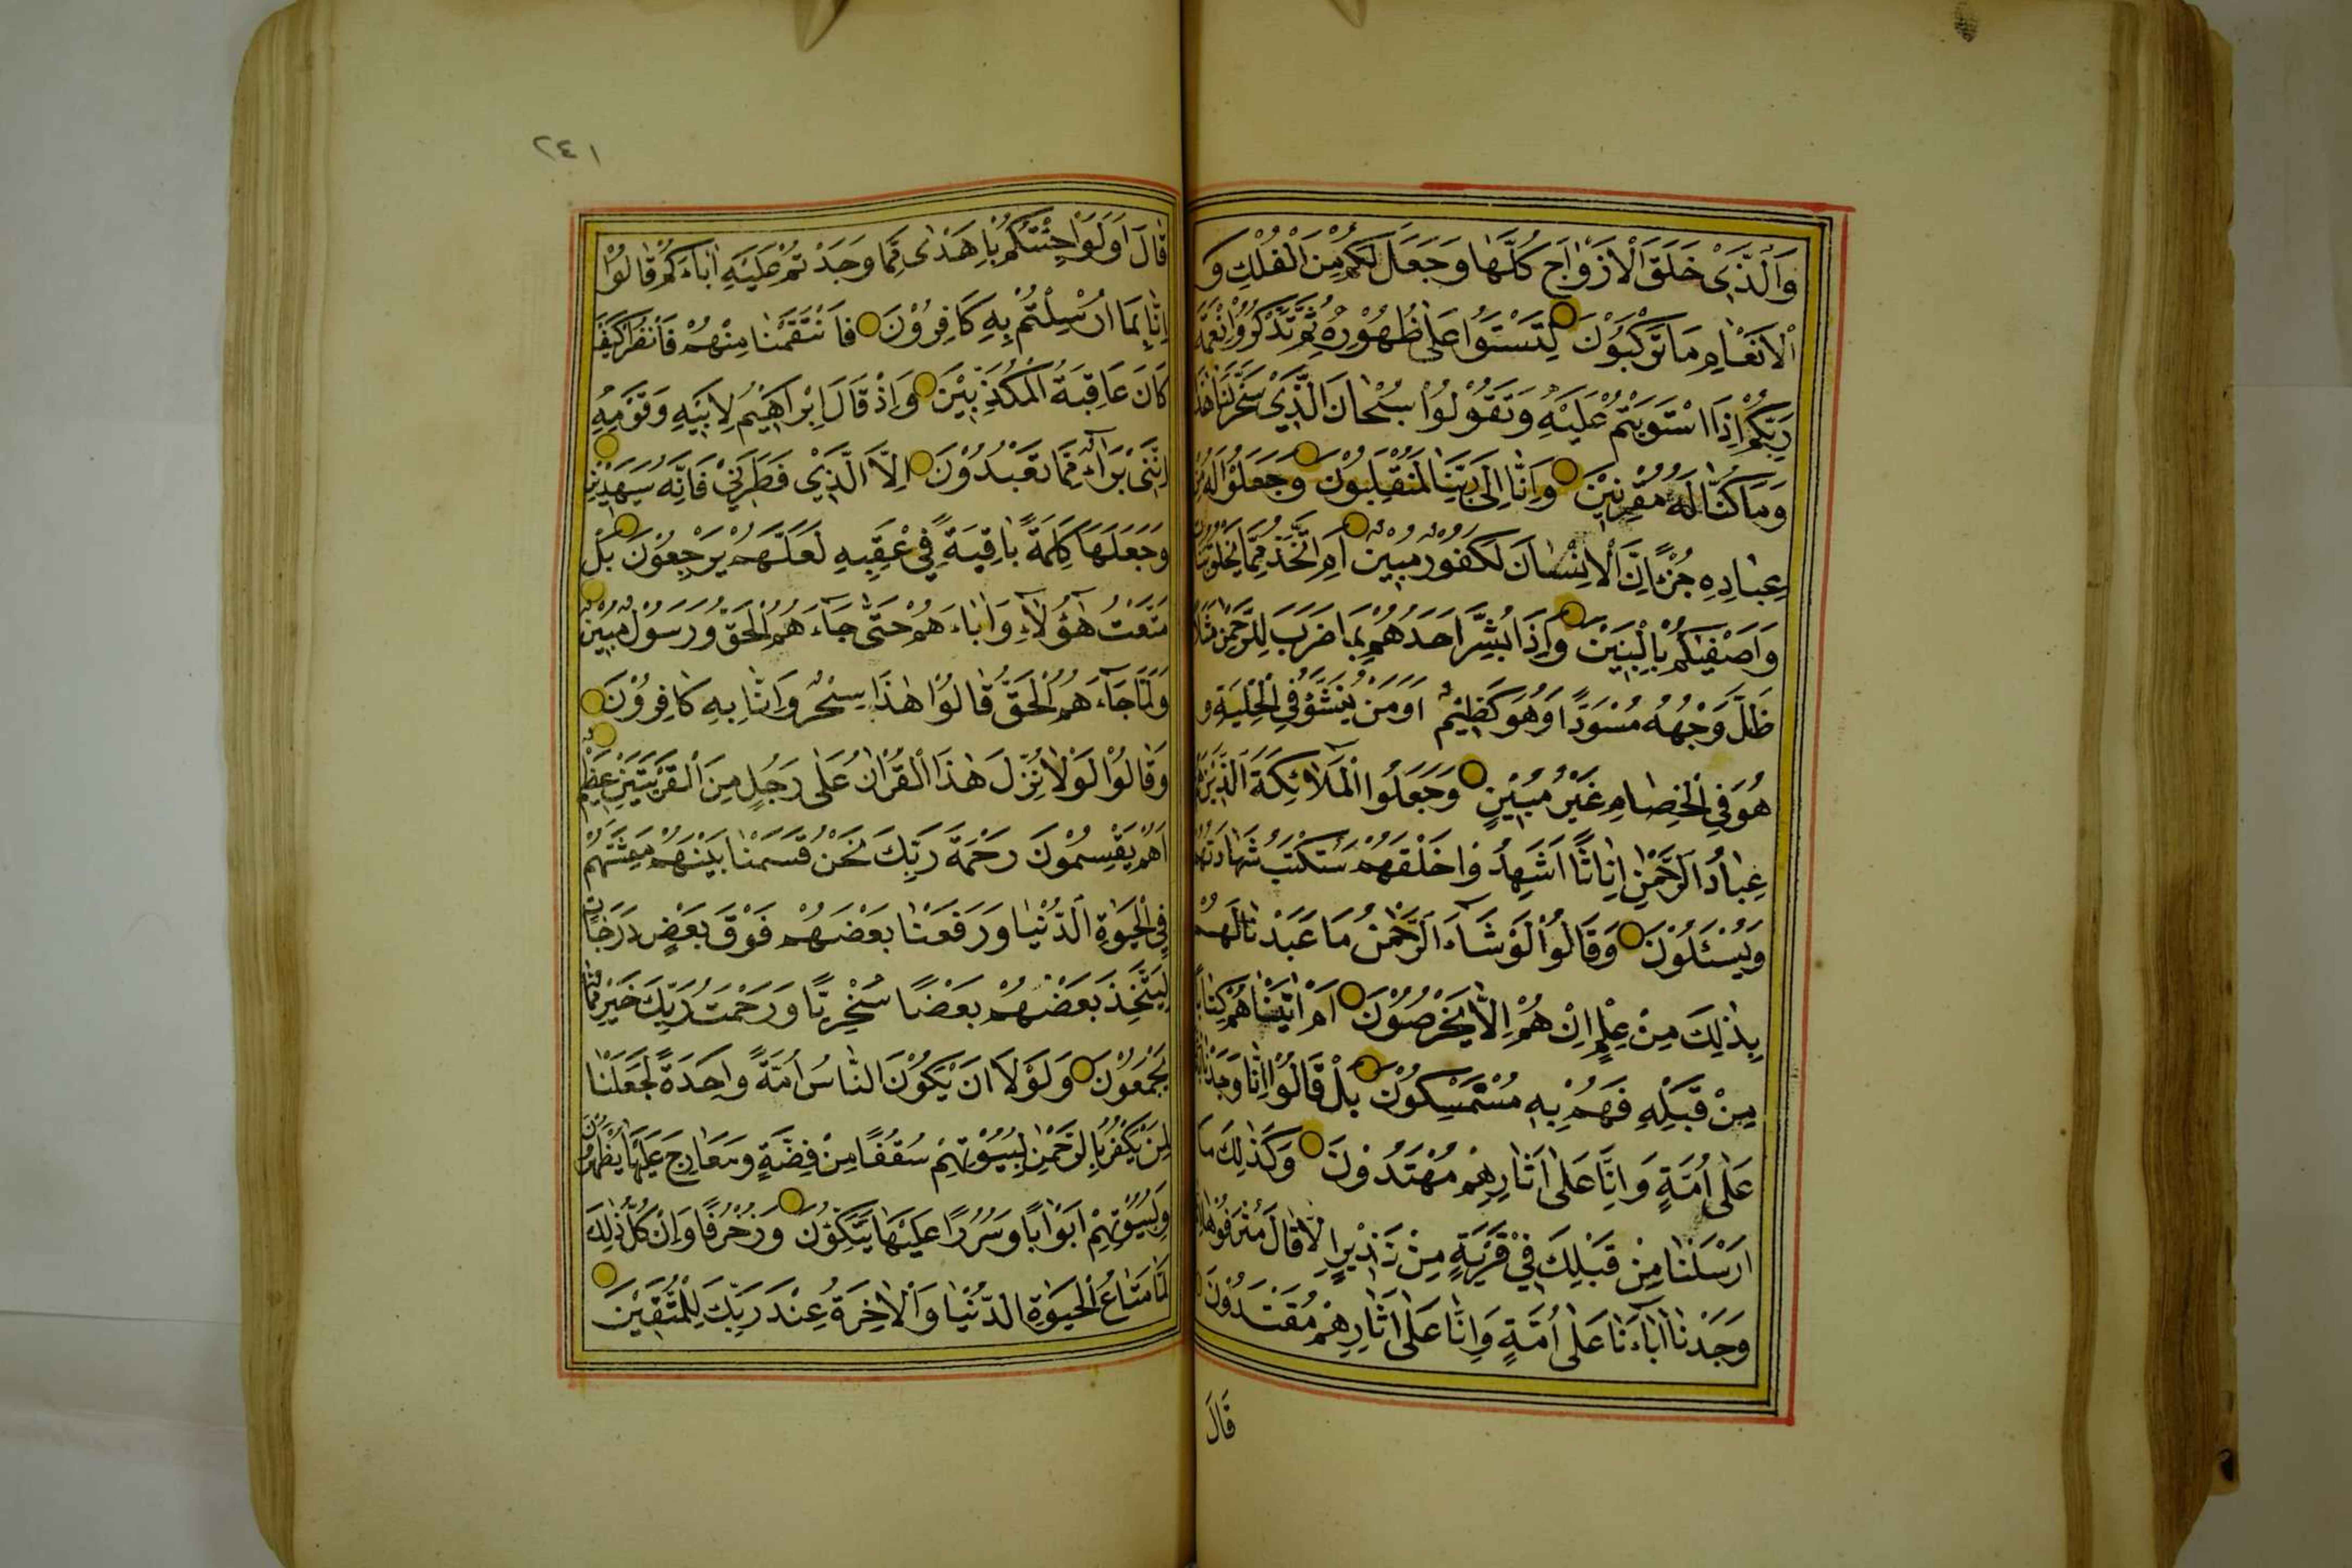 وَالَّذِي خَلَقَ الْاَزْوَاجَ كُلَّهَا وَجَعَلَ لَكُمْ مِنَ الْفُلْكِ وَ
الْاَنْعَامِ مَا تَرْكَبُونَ لِتَسْتَوُا عَلٰى ظُهُورِهِ ثُمَّ تَذْكُرُوا نِعْمَةَ
رَبِّكُمْ اِذَا اسْتَوَيْتُمْ عَلَيْهِ وَتَقُولُوا سُبْحَانَ الَّذِي سَخَّرَ لَنَا هٰذَا
وَمَا كُنَّا لَهُ مُقْرِنِينَ وَاِنَّا اِلٰى رَبِّنَا لَمُنْقَلِبُونَ وَجَعَلُوا لَهُ مِنْ
عِبَادِهِ جُزْءًا اِنَّ الْاِنْسَانَ لَكَفُورٌ مُبِينٌ اَمِ اتَّخَذَ مِمَّا يَخْلُقُ بَنَاتٍ
وَاَصْفٰيكُمْ بِالْبَنِينَ وَاِذَا بُشِّرَ اَحَدُهُمْ بِمَا ضَرَبَ لِلرَّحْمٰنِ مَثَلًا
ظَلَّ وَجْهُهُ مُسْوَدًّا وَهُوَ كَظِيمٌ اَوَمَنْ يُنَشَّؤُ فِي الْحِلْيَةِ وَ
هُوَ فِي الْخِصَامِ غَيْرُ مُبِينٍ وَجَعَلُوا الْمَلَائِكَةَ الَّذِينَ هُمْ
عِبَادُ الرَّحْمٰنِ اِنَاثًا اَشَهِدُوا خَلْقَهُمْ سَتُكْتَبُ شَهَادَتُهُمْ
وَيُسْئَلُونَ وَقَالُوا لَوْ شَاءَ الرَّحْمٰنُ مَا عَبَدْنَاهُمْ مَا لَهُمْ
بِذٰلِكَ مِنْ عِلْمٍ اِنْ هُمْ اِلَّا يَخْرُصُونَ اَمْ اٰتَيْنَاهُمْ كِتَابًا
مِنْ قَبْلِهِ فَهُمْ بِهِ مُسْتَمْسِكُونَ بَلْ قَالُوا اِنَّا وَجَدْنَا اٰبَاءَنَا
عَلٰى اُمَّةٍ وَاِنَّا عَلٰى اٰثَارِهِمْ مُهْتَدُونَ وَكَذٰلِكَ مَا
اَرْسَلْنَا مِنْ قَبْلِكَ فِي قَرْيَةٍ مِنْ نَذِيرٍ اِلَّا قَالَ مُتْرَفُوهَا اِنَّا
وَجَدْنَا اٰبَاءَنَا عَلٰى اُمَّةٍ وَاِنَّا عَلٰى اٰثَارِهِمْ مُقْتَدُونَ
قَالَ
٢٤١
قَالَ اَوَلَوْ جِئْتُكُمْ بِاَهْدٰى مِمَّا وَجَدْتُمْ عَلَيْهِ اٰبَاءَكُمْ قَالُوا
اِنَّا بِمَا اُرْسِلْتُمْ بِهِ كَافِرُونَ فَانْتَقَمْنَا مِنْهُمْ فَانْظُرْ كَيْفَ
كَانَ عَاقِبَةُ الْمُكَذِّبِينَ وَاِذْ قَالَ اِبْرَاهِيمُ لِاَبِيهِ وَقَوْمِهِ
اِنَّنِي بَرَاءٌ مِمَّا تَعْبُدُونَ اِلَّا الَّذِي فَطَرَنِي فَاِنَّهُ سَيَهْدِينِ
وَجَعَلَهَا كَلِمَةً بَاقِيَةً فِي عَقِبِهِ لَعَلَّهُمْ يَرْجِعُونَ بَلْ
مَتَّعْتُ هٰؤُلَاءِ وَاٰبَاءَهُمْ حَتّٰى جَاءَهُمُ الْحَقُّ وَرَسُولٌ مُبِينٌ
وَلَمَّا جَاءَهُمُ الْحَقُّ قَالُوا هٰذَا سِحْرٌ وَاِنَّا بِهِ كَافِرُونَ
وَقَالُوا لَوْلَا نُزِّلَ هٰذَا الْقُرْاٰنُ عَلٰى رَجُلٍ مِنَ الْقَرْيَتَيْنِ عَظِيمٍ
اَهُمْ يَقْسِمُونَ رَحْمَةَ رَبِّكَ نَحْنُ قَسَمْنَا بَيْنَهُمْ مَعِيشَتَهُمْ
فِي الْحَيٰوةِ الدُّنْيَا وَرَفَعْنَا بَعْضَهُمْ فَوْقَ بَعْضٍ دَرَجَاتٍ
لِيَتَّخِذَ بَعْضُهُمْ بَعْضًا سُخْرِيًّا وَرَحْمَتُ رَبِّكَ خَيْرٌ مِمَّا
يَجْمَعُونَ وَلَوْلَا اَنْ يَكُونَ النَّاسُ اُمَّةً وَاحِدَةً لَجَعَلْنَا
لِمَنْ يَكْفُرُ بِالرَّحْمٰنِ لِبُيُوتِهِمْ سُقُفًا مِنْ فِضَّةٍ وَمَعَارِجَ عَلَيْهَا يَظْهَرُونَ
وَلِبُيُوتِهِمْ اَبْوَابًا وَسُرُرًا عَلَيْهَا يَتَّكِؤُنَ وَزُخْرُفًا وَاِنْ كُلُّ ذٰلِكَ
لَمَّا مَتَاعُ الْحَيٰوةِ الدُّنْيَا وَالْاٰخِرَةُ عِنْدَ رَبِّكَ لِلْمُتَّقِينَ